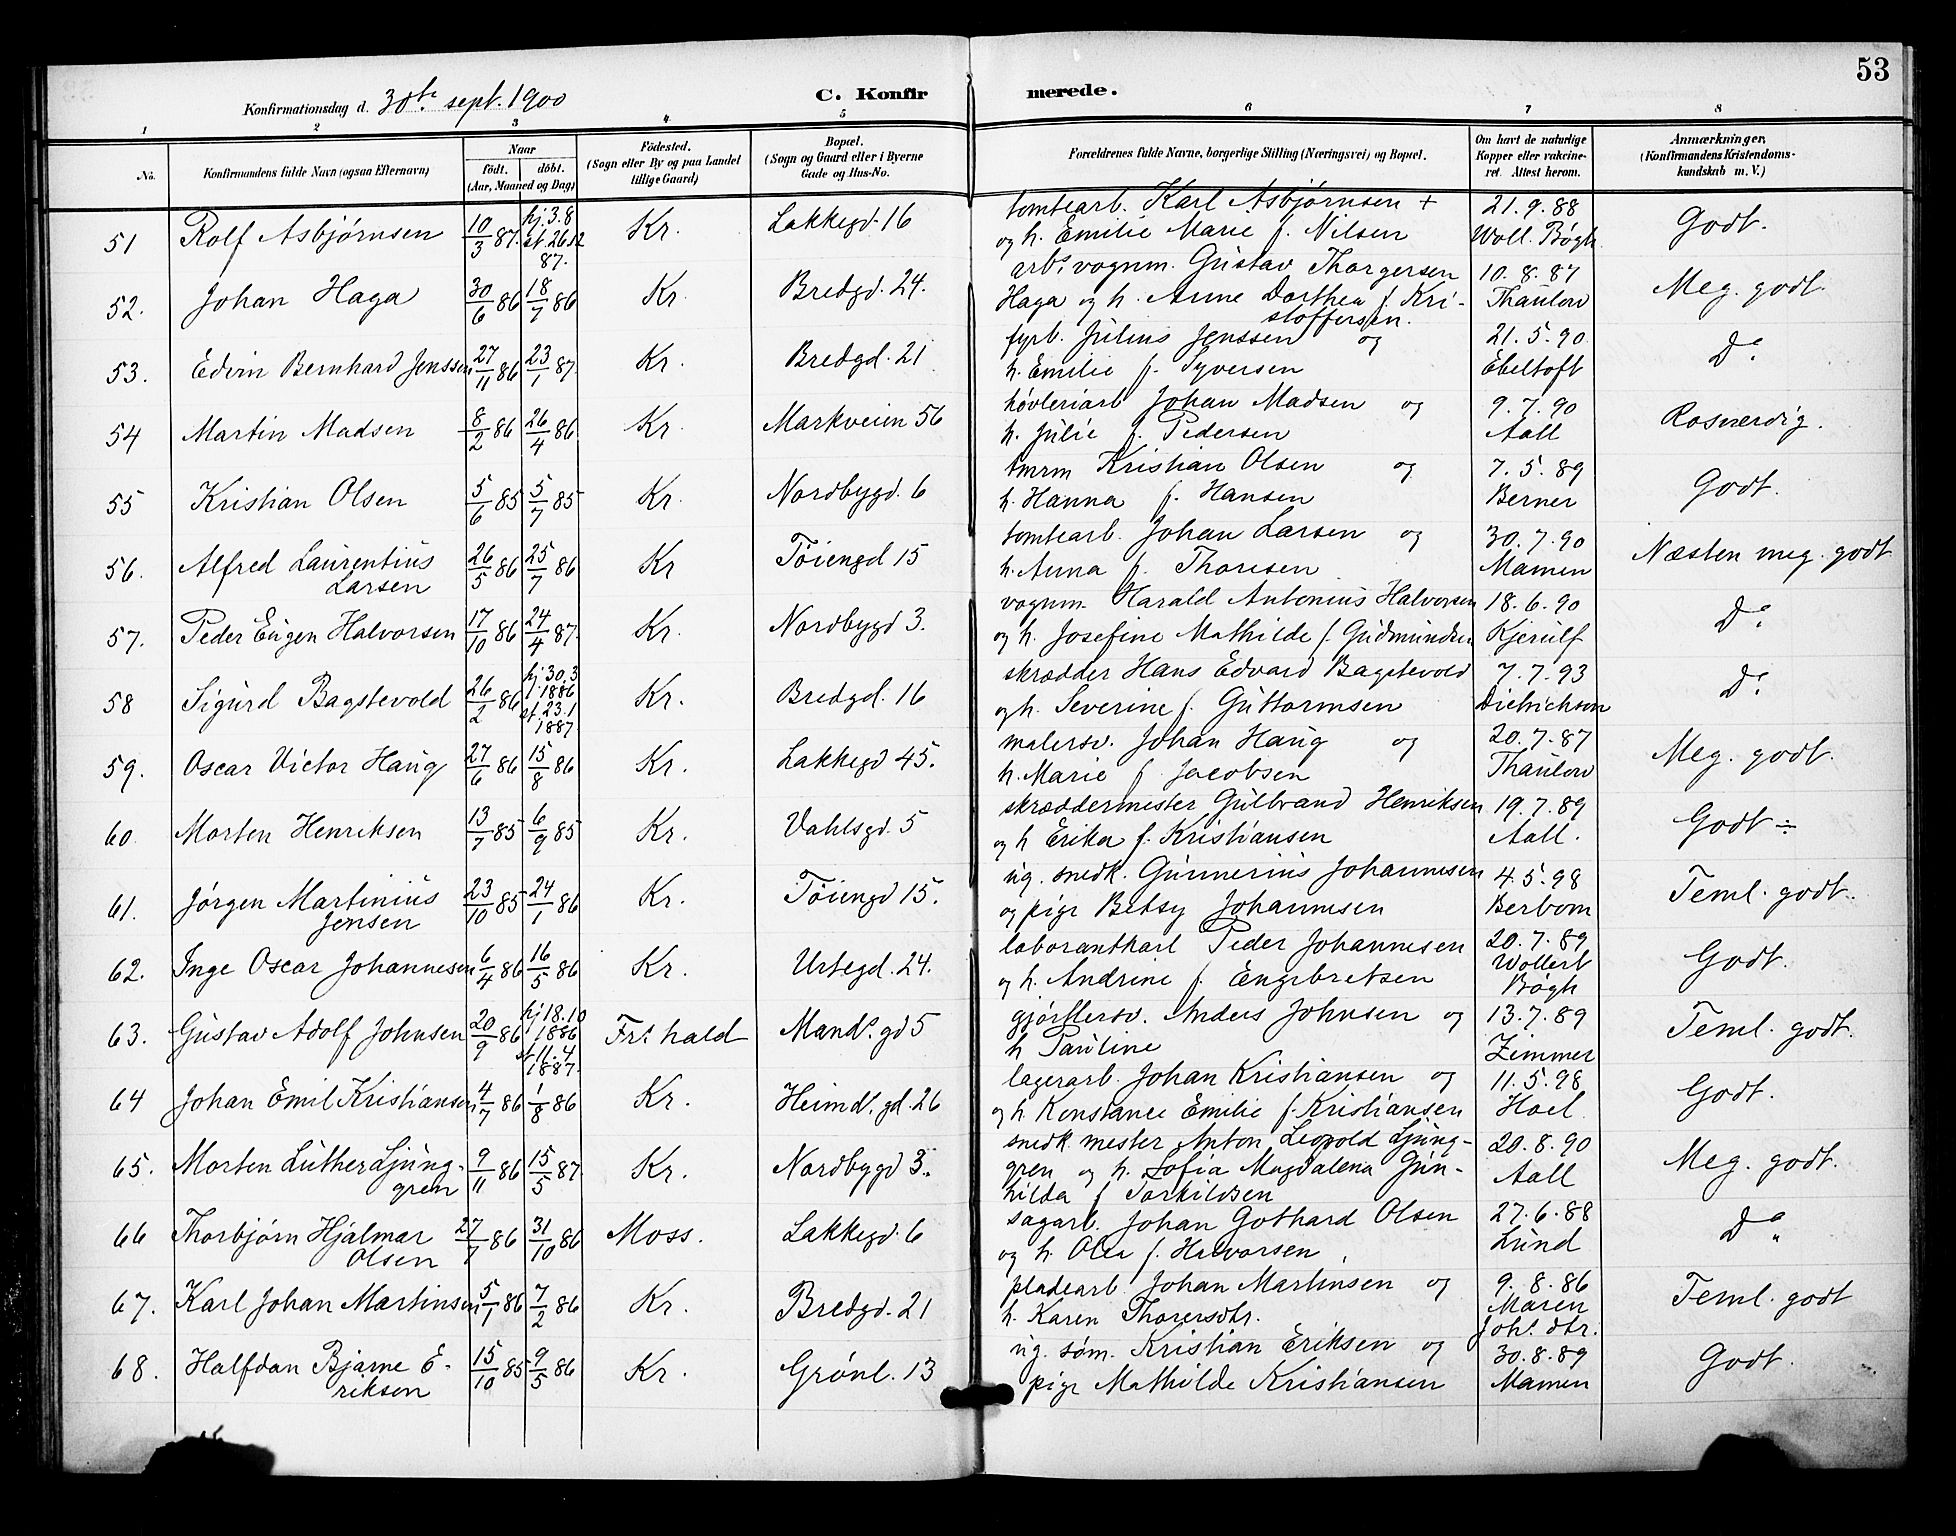 53
Konfirmationsdag d. 30te sept. 1900
C. Konfir merede.
1 2 3 4 5 6 7 8
No.
Konfirmandens fulde Navn (ogsaa Efternavn)
Naar
født. døbt.
(Aar, Maaned og Dag)
Fødested.
(Sogn eller By og paa Landet
tillige Gaard)
Bopæl.
(Sogn og Gaard eller i Byerne
Gade og Hus-No.
Forældrenes fulde Navne, borgerlige Stilling (Næringsvei) og Bopæl.
Om havt de naturlige
Kopper eller vakcine-
ret. Attest herom.
Anmærkninger.
(Konfirmandens Kristendoms-
kundskab m. V.)
51 Rolf Asbjørnsen 10/3 87. hj. 3.8 st. 26.12 87. Kr. Lakkegd. 16 tomtearb. Karl Asbjørnsen +
og h. Emilie Marie f. Nilsen 21.9.88 Woll. Bøgh Godt.
52. Johan Haga 30/6 86 18/7 86 Kr. Bredgd. 24. arb., vognm. Gustav Thorgersen
Haga og h. Anne Dorthea f. Kri-
stoffersen. 10.8.87 Thaulow Meg. godt.
53. Edvin Bernhard Jenssen 27/11 86 23/1 87. Kr. Bredgd. 21 fyrb. Julius Jenssen og
h. Emilie f. Syversen 21.5.90 Ebeltoft Do
54 Martin Madsen 8/2 86 26/4 86 Kr. Markveien 56 høvleriarb Johan Madsen og
h. Julie f. Pedersen 9.7.90 Aall Rosverdig.
55 Kristian Olsen 5/6 85 5/7 85 Kr. Nordbygd. 6 tmrm Kristian Olsen og
h. Hanna f. Hansen 7.5.89 Berner Godt.
56. Alfred Laurentius
Larsen 26/5 86 25/7 86 Kr Tøiengd 15 tomtearb. Johan Larsen og
h. Anna f. Thoresen 30.7.90 Mamen Næsten meg. godt
57. Peder Eugen Halvorsen 17/10 86 24/4 87. Kr. Nordbygd 3. vognm. Harald Antonius Halvorsen
og h. Josefine Mathilde f. Gudmundsen 18.6.90 Kjerulf Do
58 Sigurd Bagstevold 26/2 86 hj 30.3 1886 st. 23.1 1887 Kr. Bredgd. 16 skrædder Hans Edvard Bagstevold
og h. Severine f. Guttormsen 7.7.93 Dietrichson Do
59. Oscar Victor Haug 27/6 86 15/8 86 Kr. Lakkegd 45. malersv. Johan Haug og
h. Marie f. Jacobsen 20.7.87 Thaulow Meg. godt.
60 Morten Henriksen 13/7 85 6/9 85 Kr. Vahlsgd. 5 skræddermester Gulbrand Henriksen
og h Erika f. Kristiansen 19.7.89 Aall. Godt ÷
61. Jørgen Martinius
Jensen 23/10 85 24/1 86 Kr. Tøiengd 15. ug. snedk. Gunnerius Johannesen
og pige Betsy Johannesen 4.5.98 Berbom Teml. godt.
62. Inge Oscar Johannesen 6/4 86 16/5 86 Kr. Urtegd. 24. laborantkarl Peder Johannesen
og h. Andrine f. Engebretsen 20.7.89 Wollert Bøgh Godt.
63. Gustav Adolf Johnsen 20/9 86 hj 18.10 1886 st 11.4 1887. Fr. hald Mands. gd 5 gjørtlersv. Anders Johnsen og
h Pauline 13.7.89 Zimmer Teml. godt.
64 Johan Emil Kristiansen 4/7 86 1/8 86 Kr. Heimd. gd. 26 lagerarb. Johan Kristiansen og
og h Konstance Emilie f. Kristiansen 11.5.98 Hoel Godt.
65. Morten Luther Ljung-
gren 9/11 86 15/5 87. Kr. Nordbygd 3. snedk. mester Anton Leopold Ljung-
gren og h. Sofia Magdalena Gun-
hilda f Torkildsen 20.8.90 Aall Meg. godt.
66 Thorbjørn Hjalmar
Olsen 27/7 86 31/10 86 Moss. Lakkegd. 6 sagarb. Johan Gothard Olsen
og h. Olea f. Halvorsen 27.6.88 Lund Do
67. Karl Johan Martinsen 5/1 86 7/2 86 Kr. Bredgd. 21 pladearb. Johan Martinsen og
h. Karen Thoresdtr. 9.8.86 Maren Joh. dtr. Teml. godt
68. Halfdan Bjarne E-
riksen 15/10 85 9/5 86 Kr. Grønl. 13 ug. søm. Kristian Eriksen og
pige Mathilde Kristiansen 30.8.89 Mamen Godt.